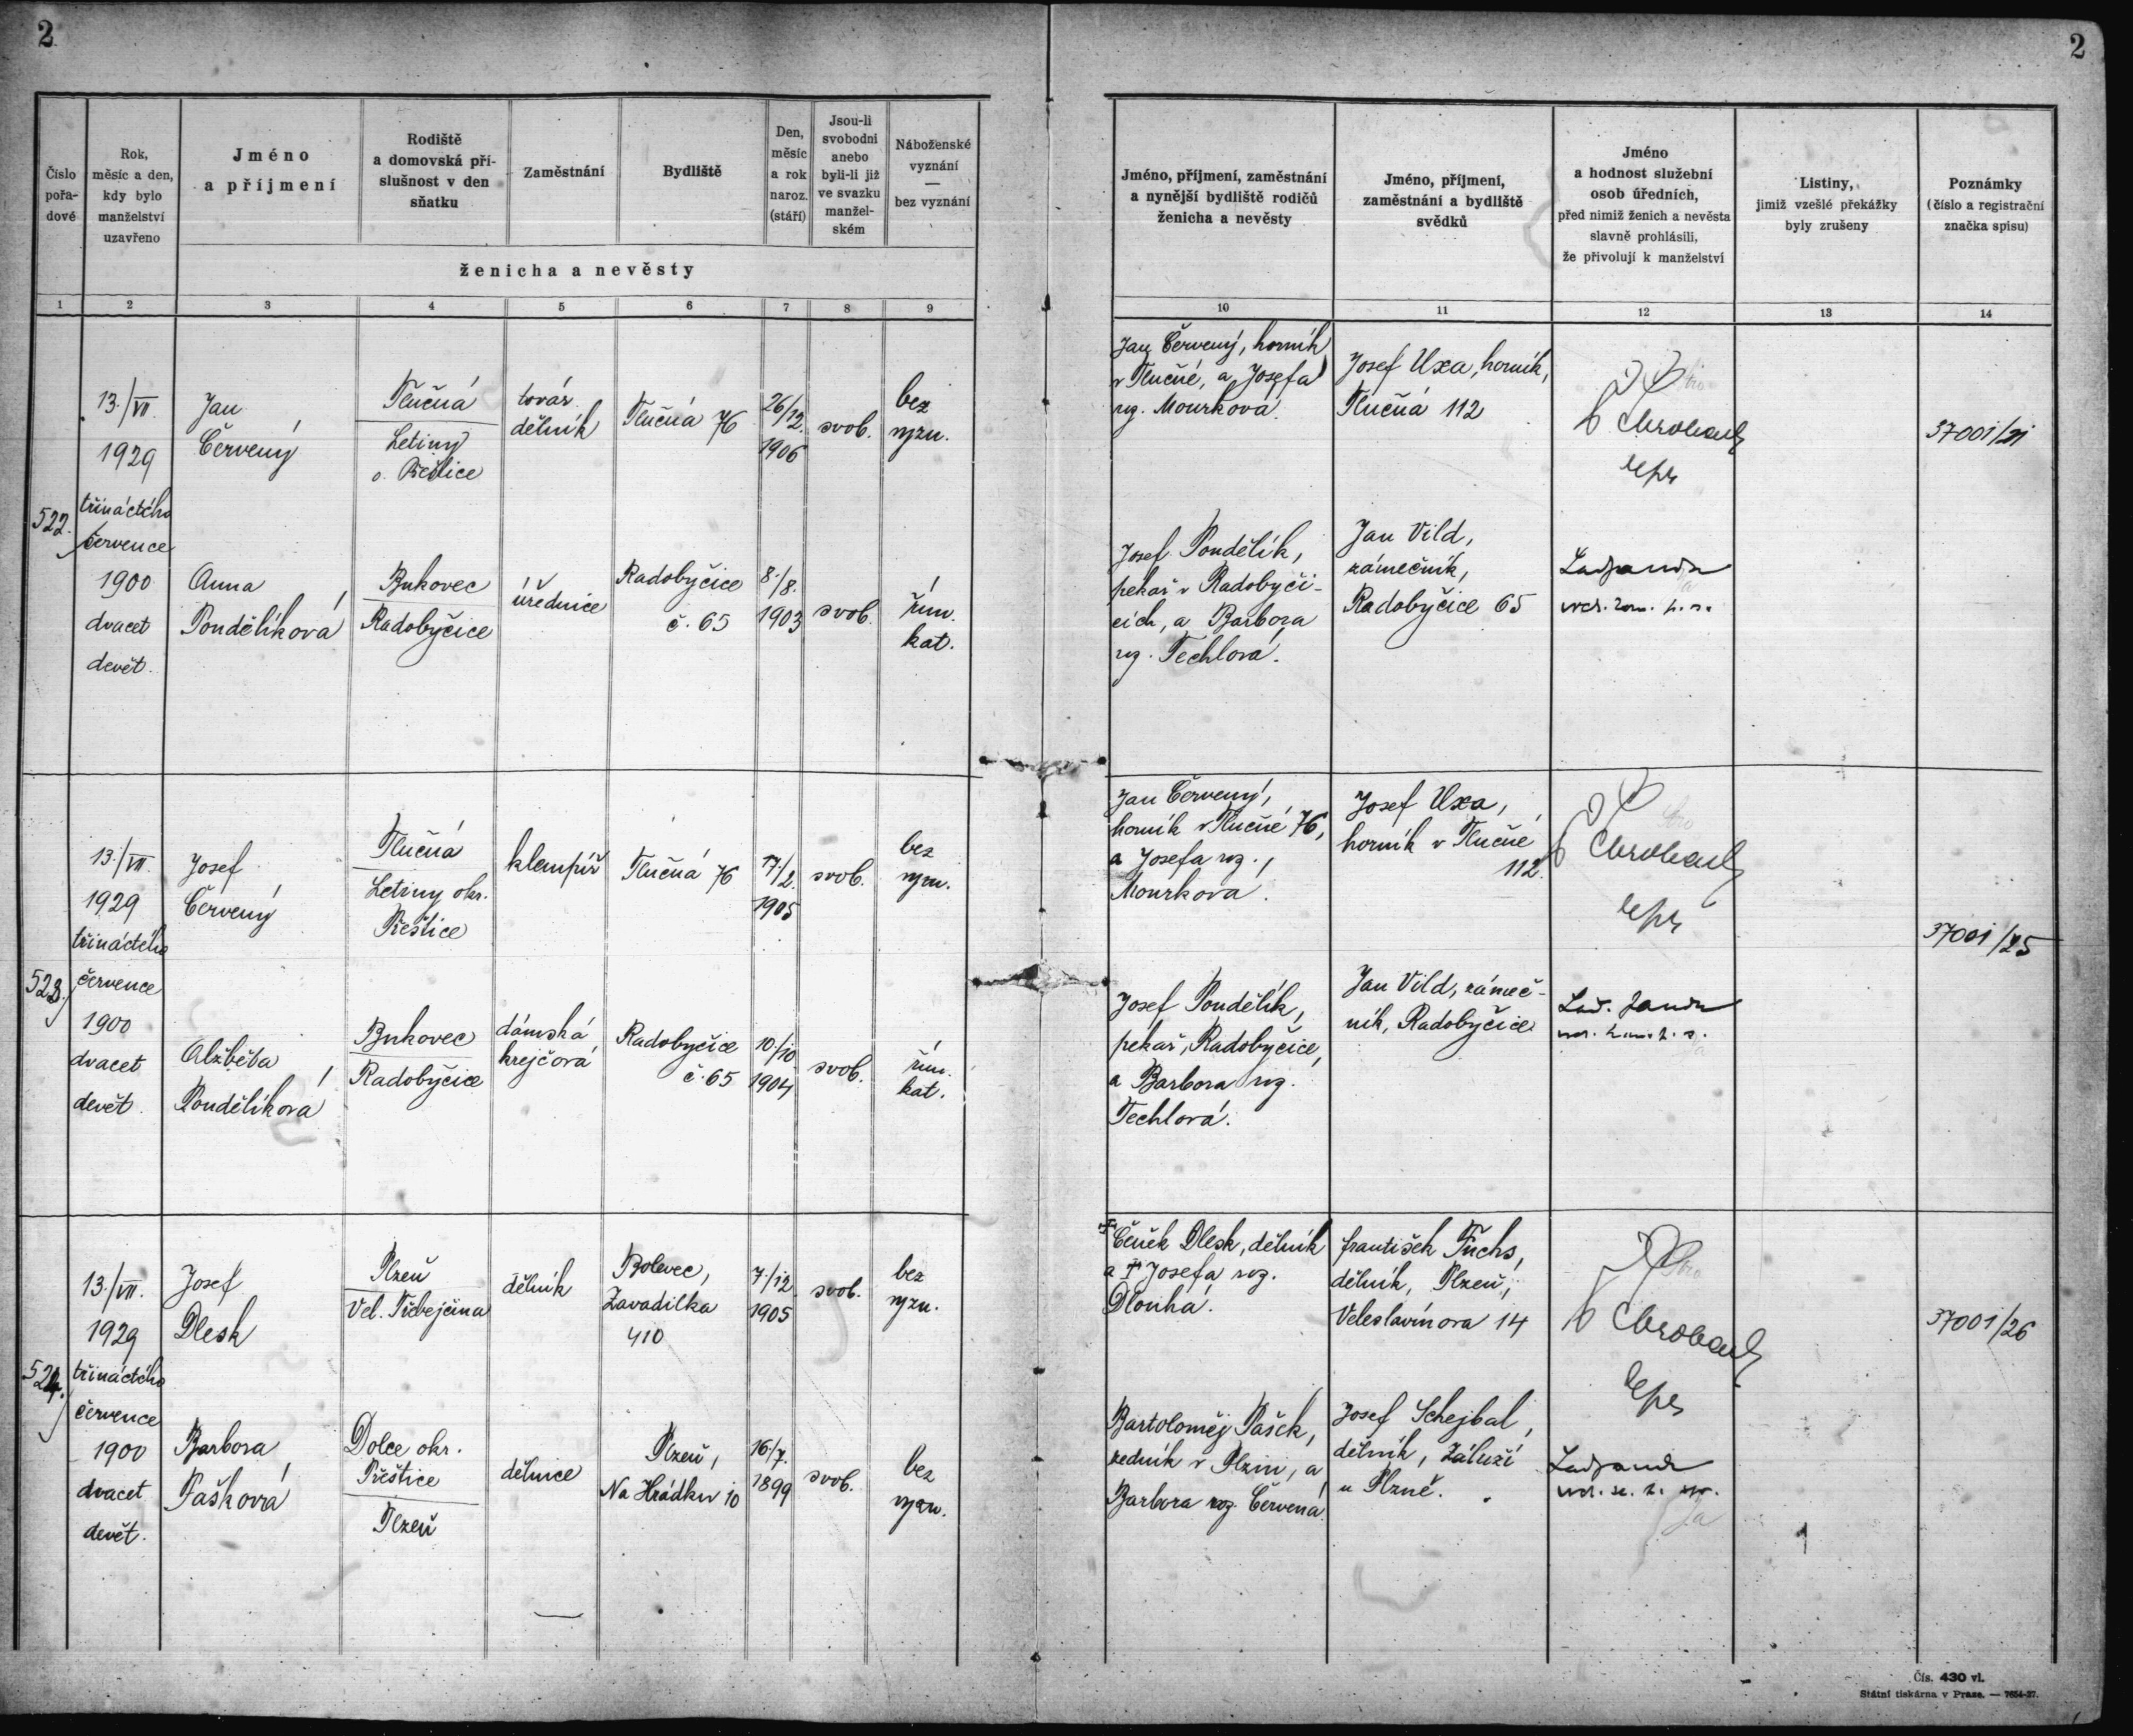 2
2
Číslo
pořa-
dové
Rok,
měsíc a den,
kdy bylo
manželství
uzavřeno
Jméno
a příjmení
Rodiště
a domovská pří-
slušnost v den
sňatku
Zaměstnání
Bydliště
Den,
měsíc
a rok
naroz.
(stáří)
Jsou-li
svobodni
anebo
byli-li již
ve svazku
manžel-
ském
Náboženské
vyznání
—
bez vyznání
ženicha a nevěsty
1 2 3 4 5 6 7 8 9
Jméno, příjmení, zaměstnání
a nynější bydliště rodičů
ženicha a nevěsty
Jméno, příjmení,
zaměstnání a bydliště
svědků
Jméno
a hodnost služební
osob úředních,
před nimiž ženich a nevěsta
slavně prohlásili,
že přivolují k manželství
Listiny,
jimiž vzešlé překážky
byly zrušeny
Poznámky
(číslo a registrační
značka spisu)
10 11 12 13 14
522.
13./VII.
1929
třináctého
července
1900
dvacet
devět.
Jan
Červený
Tlučná
Letiny
o. Přeštice
továr.
dělník
Tlučná 76
26/12.
1906
svob.
bez
vyzn.
Anna
Pondělíková
Bukovec
Radobyčice
úřednice
Radobyčice
č. 65
8./8.
1903
svob.
řím.
kat.
Jan Červený, horník
v Tlučné, a Josefa
roz. Mourková.
Josef Uxa, horník,
Tlučná 112
Chrobach
37001/21
Josef Pondělík,
pekař v Radobyči-
cích, a Barbora
roz. Techlová.
Jan Vild,
zámečník,
Radobyčice 65
523.
13./VII.
1929
třináctého
července
1900
dvacet
devět.
Josef
Červený
Tlučná
Letiny okr.
Přeštice
klempíř
Tlučná 76
17/2.
1905
svob.
bez
vyzn.
Alžběta
Pondělíková
Bukovec
Radobyčice
dámská
krejčová
Radobyčice
č. 65
10./10
1904
svob.
řím.
kat.
Jan Červený,
horník v Tlučné 76,
a Josefa roz.
Mourková.
Josef Uxa,
horník v Tlučné
112.
Chrobach
37001/25
Josef Pondělík,
pekař, Radobyčice,
a Barbora roz.
Techlová.
Jan Vild, zámeč-
ník, Radobyčice
Lad. Janda
524.
13./VII.
1929
třináctého
července
1900
dvacet
devět.
Josef
Dlesk
Plzeň
Vel. Třebejčina
dělník
Bolevec,
Zavadilka
410
7./12
1905
svob.
bez
vyzn.
Barbora
Pašková
Dolce okr.
Přeštice
Plzeň
dělnice
Plzeň,
Na Hrádku 10
16./7.
1899
svob.
bez
vyzn.
Čeněk Dlesk, dělník
a † Josefa roz.
Dlouhá.
František Fuchs,
dělník, Plzeň,
Veleslavínova 14
Chrobach
37001/26
Bartoloměj Pašek,
zedník v Plzni, a
Barbora roz. Červená.
Josef Schejbal,
dělník, Záluží
u Plzně.
Čís. 430 vl.
Státní tiskárna v Praze. — 7654-27.